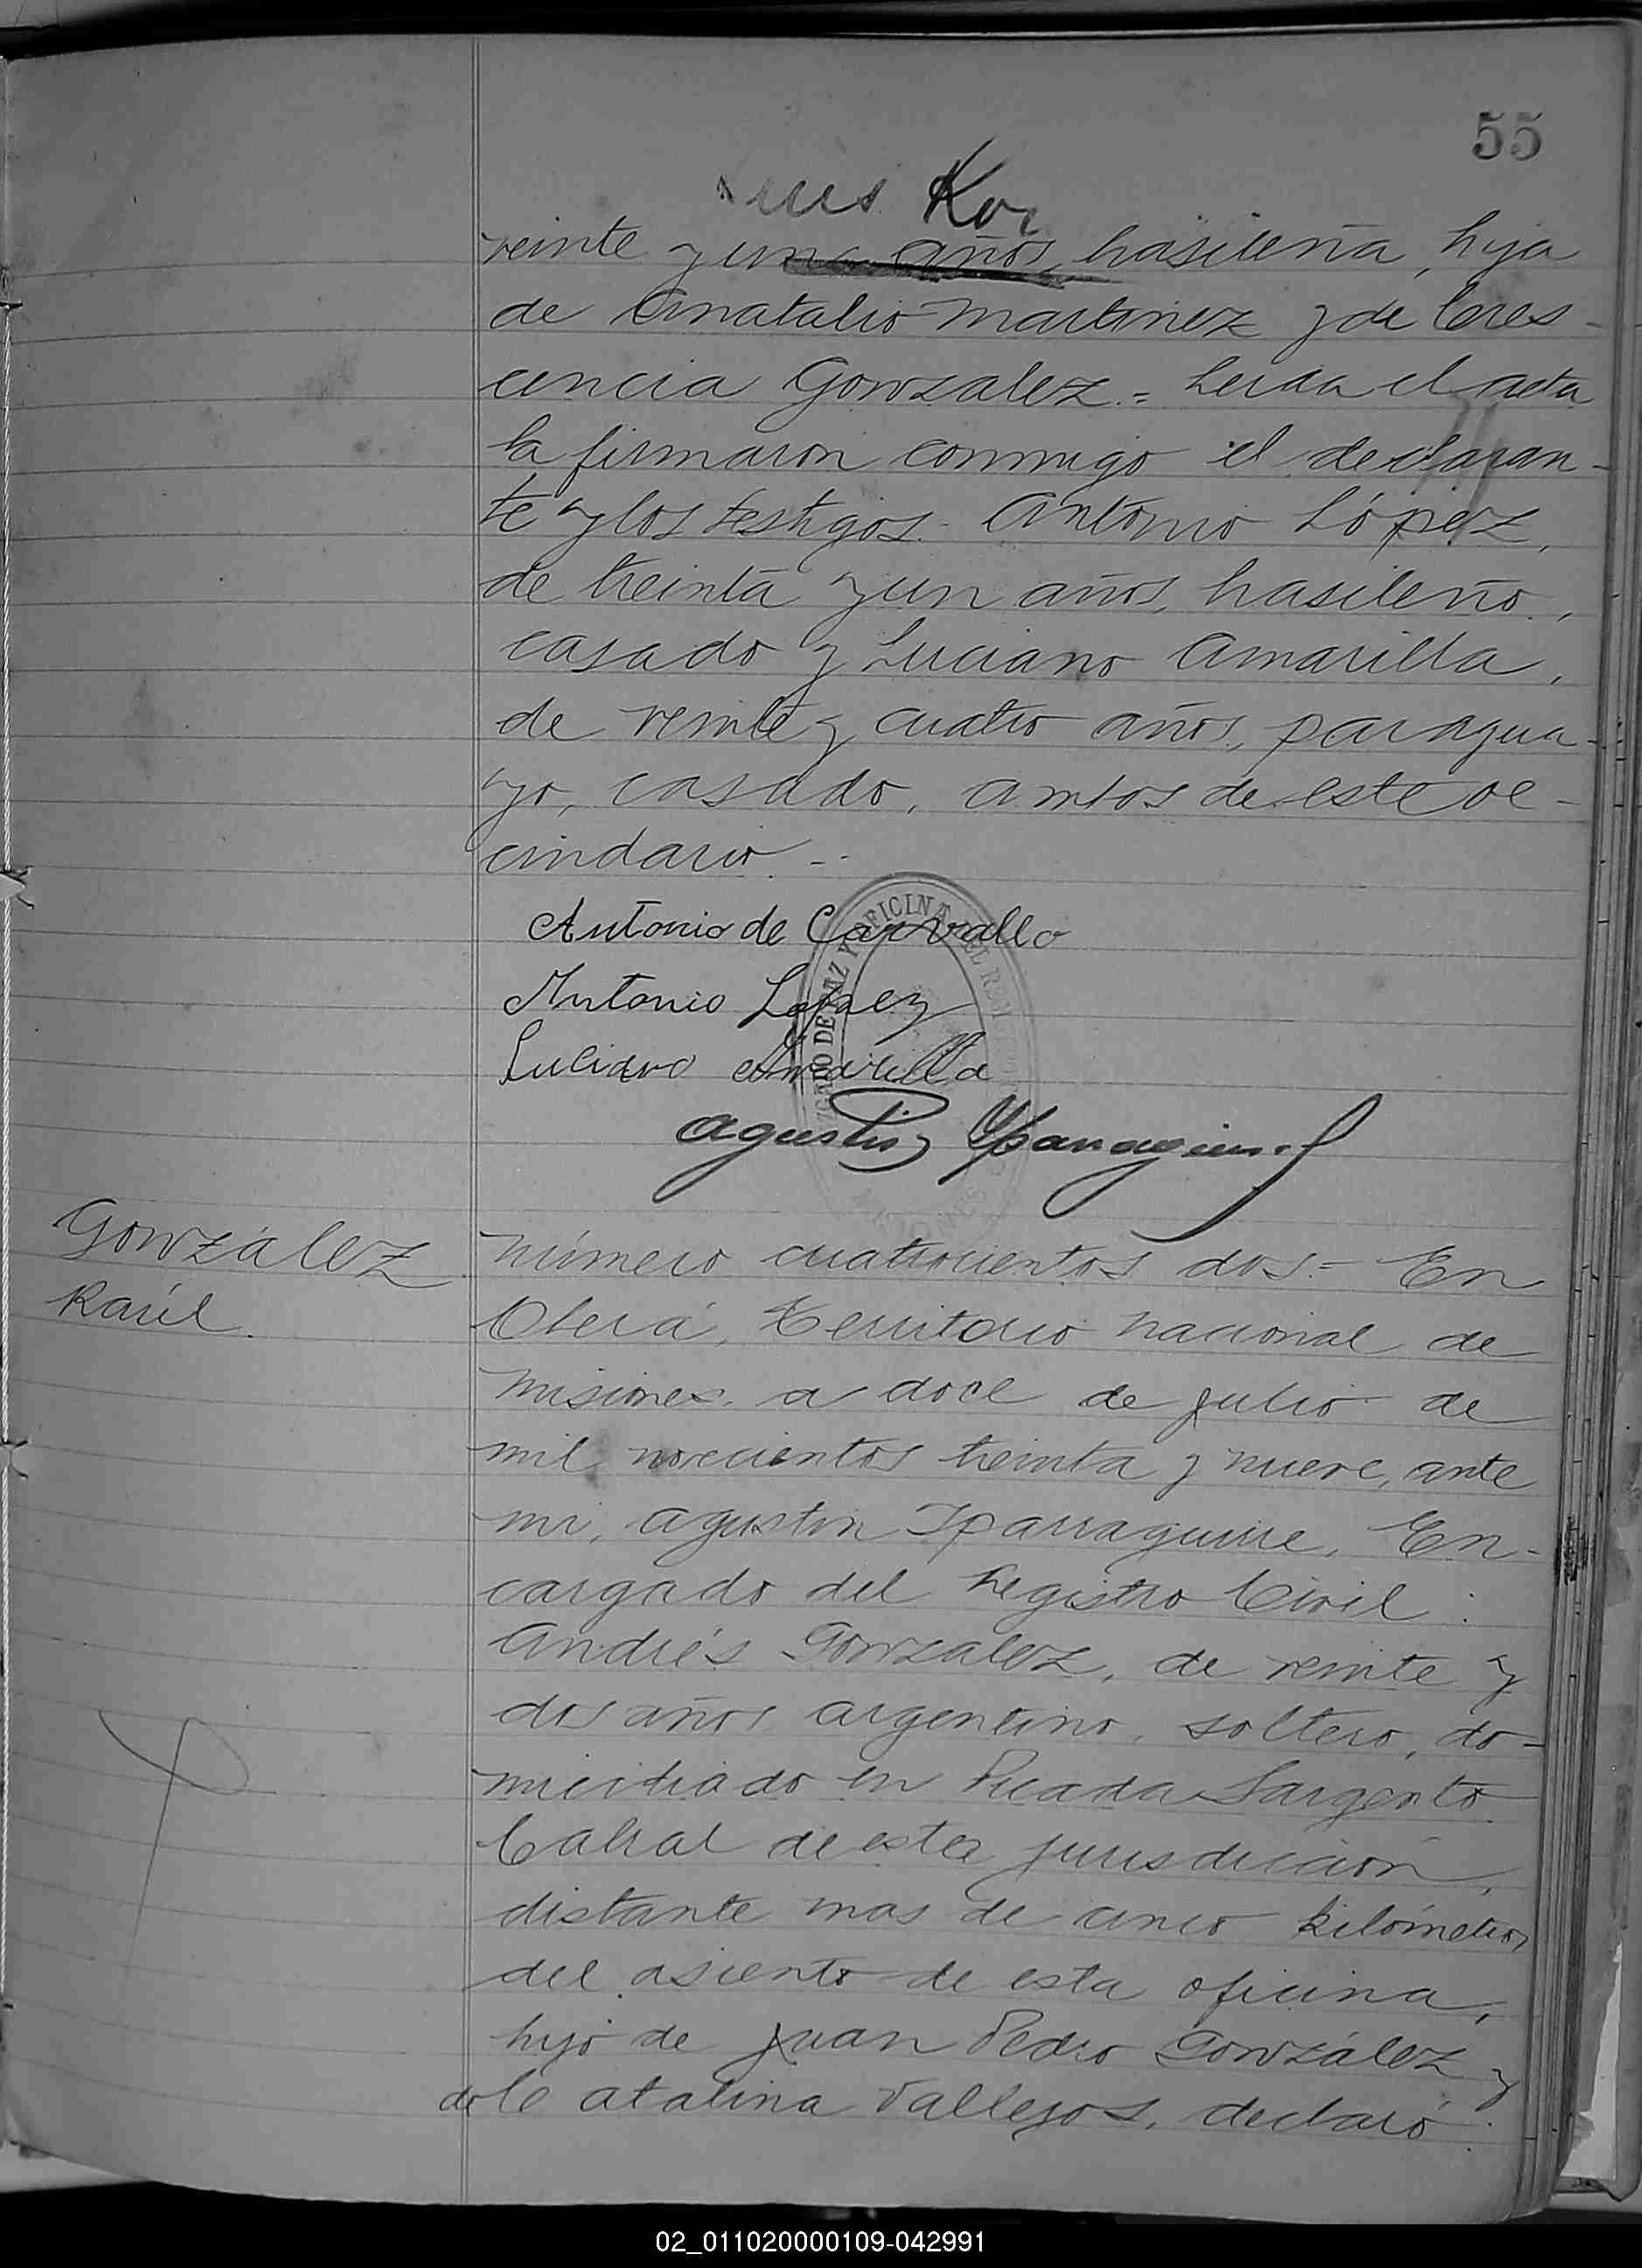 55
Kor
veinte y un años, brasileña, hija
de Anatalio Martinez y de Cres-
cencia Gonzalez.= Leida el acta
la firmaron conmigo el declaran-
te y los testigos. Antonio López,
de treinta y un años, brasileño,
casado y Luciano Amarilla,
de veinte y cuatro años, paragua-
yo, casado, ambos de este ve-
cindario.-
Antonio de Carvallo
Antonio Lopez
Luciano Amarilla
Agustin Yparraguirre
González
Raúl.
Número cuatrocientos dos.- En
Oberá, Territorio Nacional de
Misiones, a doce de julio de
mil novecientos treinta y nueve, ante
mi, Agustin Iparraguirre, En-
cargado del Registro Civil:
Andrés González, de veinte y
dos años argentino, soltero, do-
miciliado en Picada Sargento
Cabral de esta jurisdicción,
distante mas de cinco kilómetros
del asiento de esta oficina,
hijo de Juan Pedro González y
de Catalina Vallejos, declaró:
02_011020000109-042991